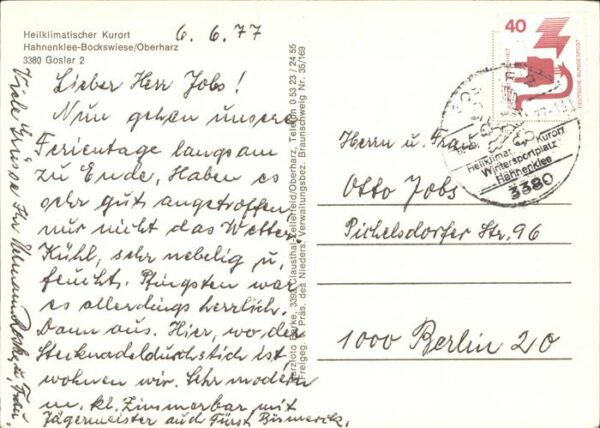 Heilklimatischer Kurort
Hahnenklee-Bockswiese/Oberharz
3380 Goslar 2
6.6.77
Lieber Herr Jobs!
Nun gehen unsere
Ferientage langsam
zu Ende, Haben es
sehr gut angetroffen
nur nicht das Wetter.
Kühl, sehr nebelig u.
feucht. Pfingsten war
es allerdings herrlich.
Dann aus. Hier, wo der
Stecknadeldurchstich ist
wohnen wir. Sehr modern
m. kl. Zimmerbar mit
Jägermeister auch Fürst Bismarck.
Viele Grüsse Ihr u. Frau.
Harzfoto Barke, 3392 Clausthal-Zellerfeld/Oberharz, Telefon 0 53 23 / 24 55
Freigeg. Präs. des Nieders. Verwaltungsbez. Braunschweig Nr. 36/169
40
DEUTSCHE BUNDESPOST
Heilklimat. Kurort
Wintersportplatz
Hahnenklee
3380
Herrn u. Frau
Otto Jobs
Pichelsdorfer Str. 96
1000 Berlin 20